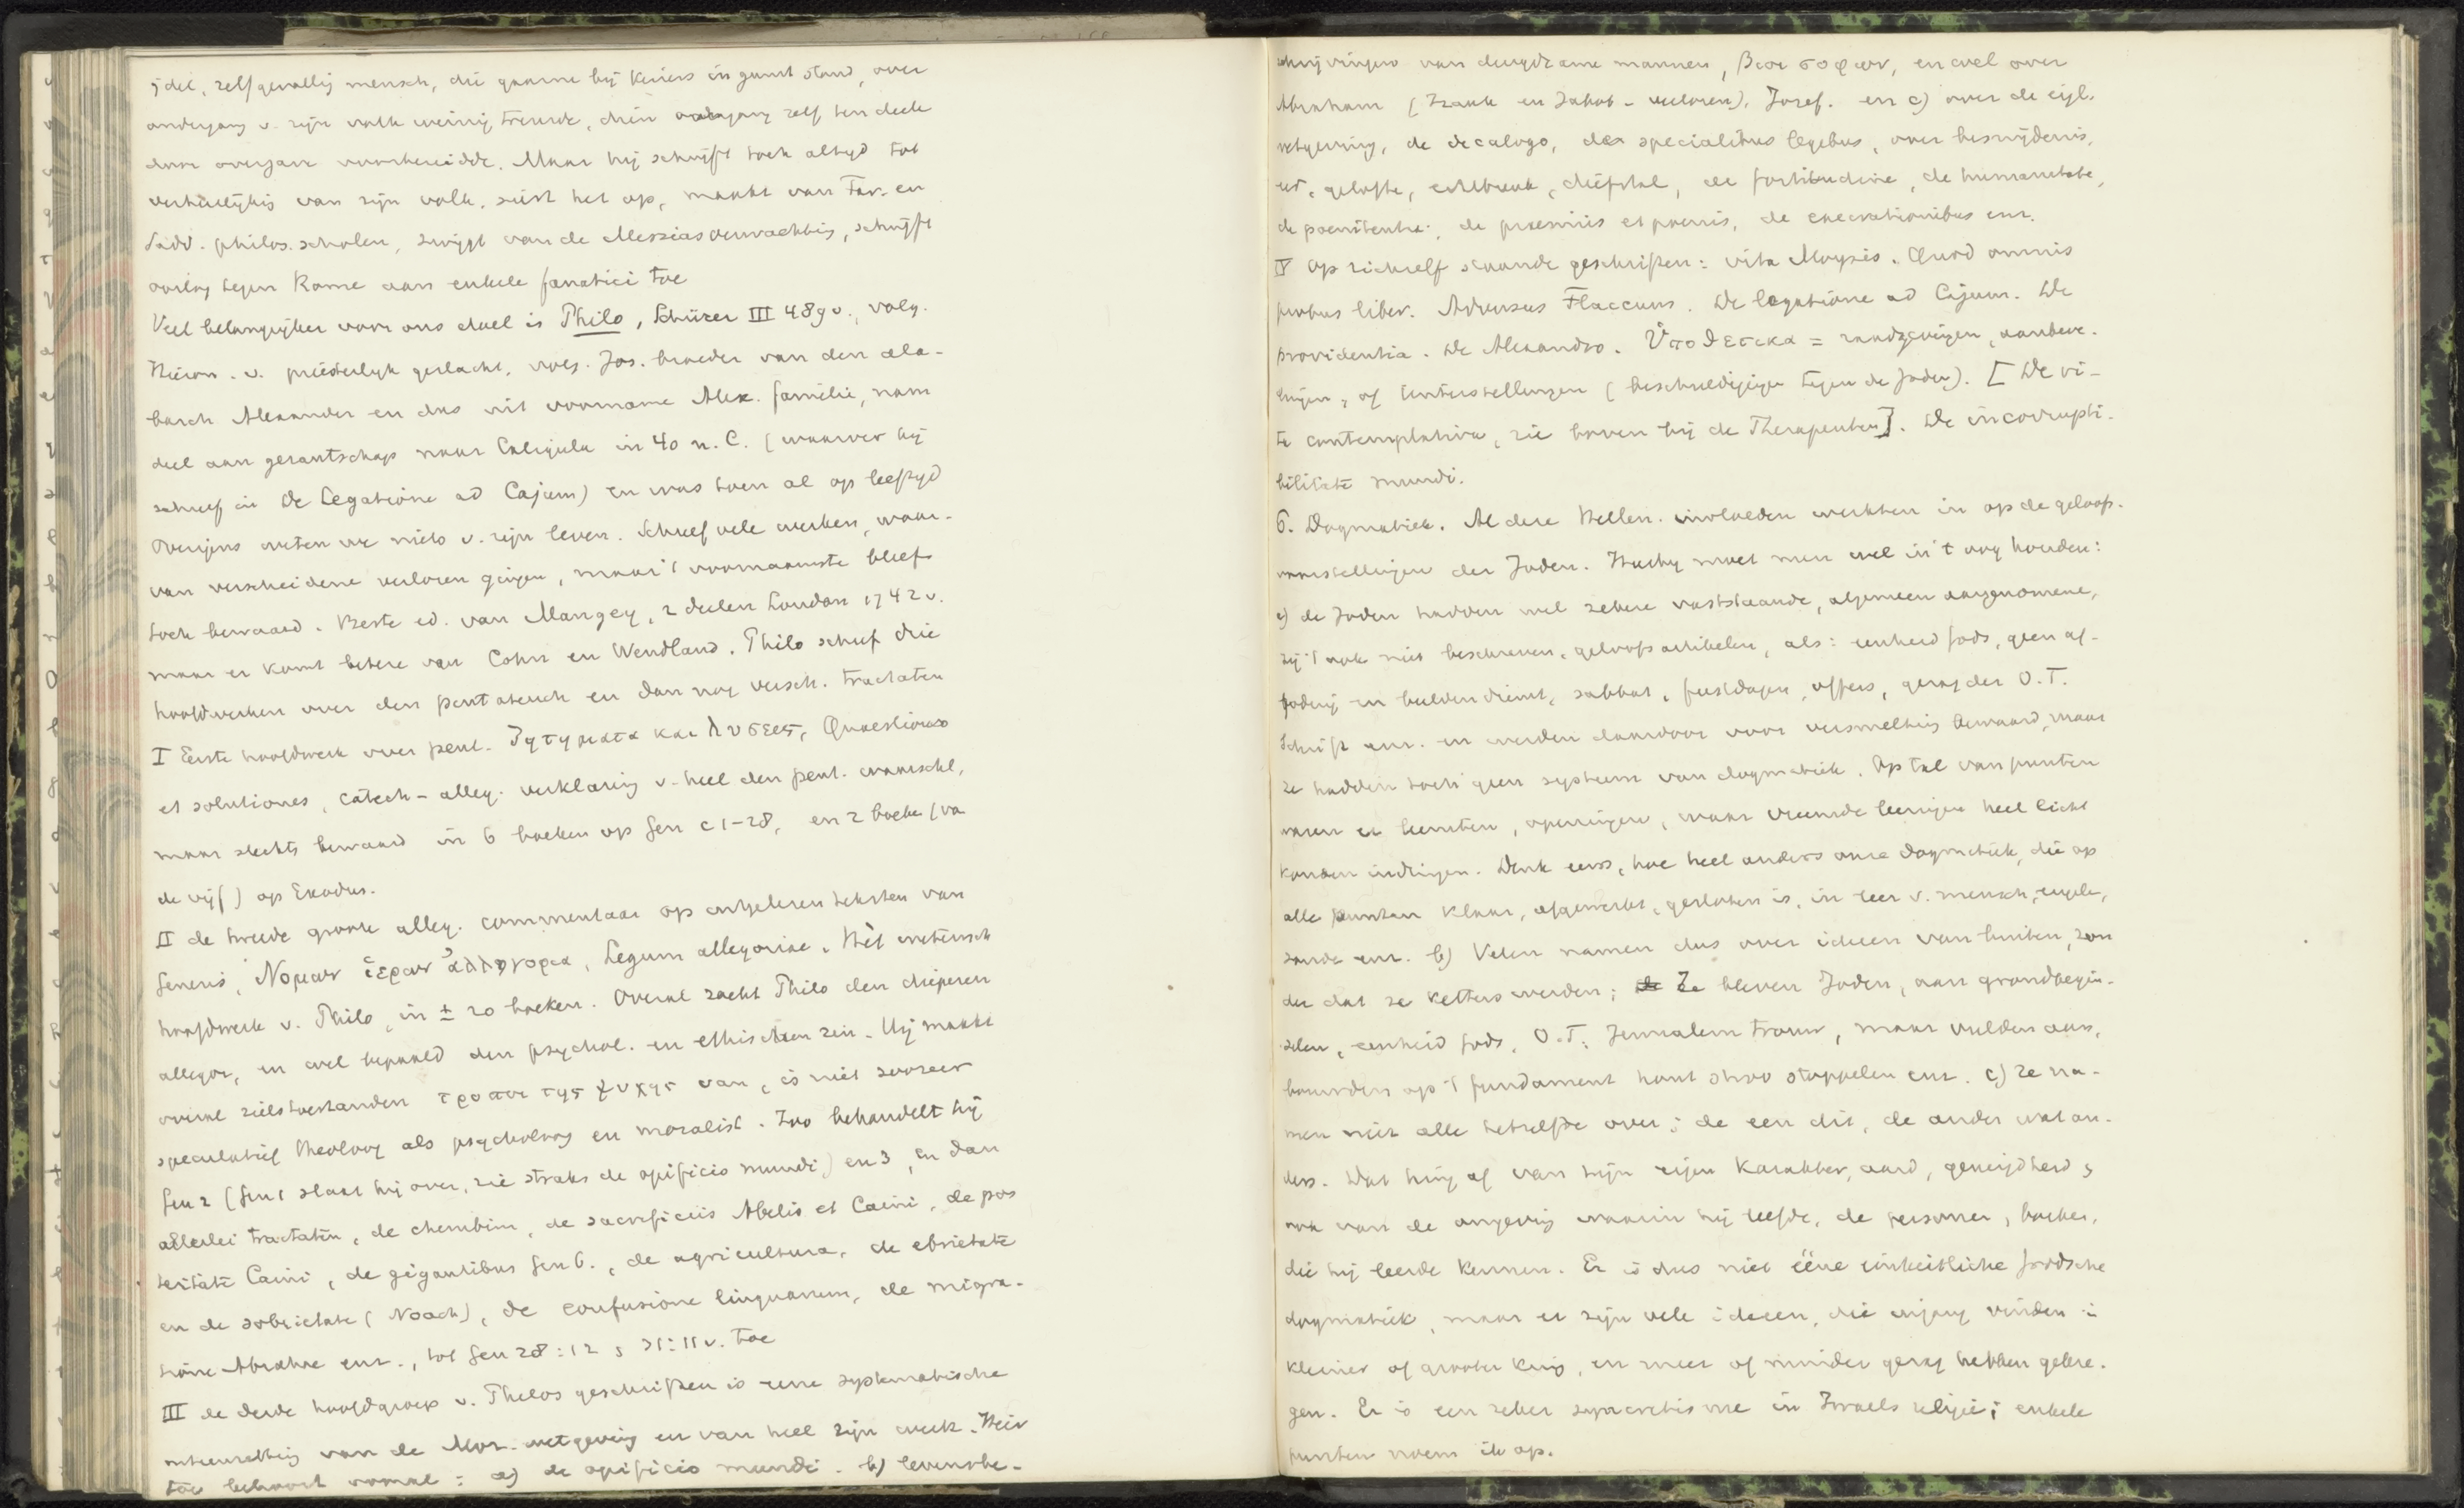 ijdel, zelfgevallig mensch, die gaarne bij keizers in gunst stond, over
ondergang v. zijn volk weinig treurde, dien ondergang zelf ten deele
door overgave voorbereidde. Maar hij schrijft toch altijd tot
verheerlijking van zijn volk, siert het op, maakt van Far. en
Sadd. philos. scholen, zwijgt van de Messiasverwachting, schrijft
oorlog tegen Rome aan enkele fanatici toe
Veel belangrijker voor ons doel is Philo, Schürer III 489 v., volg.
Hieron. v. priesterlijk geslacht, volg. Jos. broeder van den ala-
barch Alexander en dus uit voorname Alex. familie, nam
deel aan gezantschap naar Caligula in 40 n. C. (waarover hij
schreef in De Legatione ad Cajum) en was toen al op leeftijd
Overigens weten we niets v. zijn leven. Schreef vele werken, waar-
van verscheidene verloren gingen, maar 't voornaamste bleef
toch bewaard. Beste ed. van Mangey, 2 deelen London 1742 v.
maar er komt betere van Cohn en Wendland. Philo schreef drie
hoofdwerken over den pentateuch en dan nog versch. tractaten
I Eerste hoofdwerk over pent. Ζητηματα και λυσεις, Quaestiones
et solutiones, catech-alleg. verklaring v. heel den pent. waarschl,
maar slechts bewaard in 6 boeken op Gen c 1-28, en 2 boeken (va
de vijf) op Exodus.
II de tweede groote alleg. commentaar op uitgelezen teksten van
Genesis, Νομων ἱερων ἀλληγορια, Legum allegoriae. Hèt wetensch
hoofdwerk v. Philo, in ± 20 boeken. Overal zoekt Philo den dieperen
allegor, en wel bepaald den psychol. en ethischen zin. Hij maakt
overal zielstoestanden τροποι της ψυχης van, is niet zoozeer
speculatief theoloog als psycholoog en moralist. Zoo behandelt hij
Gen 2 (Gen 1 slaat hij over, zie straks de opificio mundi) en 3, en dan
allerlei tractaten, de cherubim, de sacrificiis Abelis et Caini, de pos
teritate Caini, de gigantibus Gen 6., de agricultura, de ebrietate
en de sobrietate (Noach), de confusione linguarum, de migra-
tione Abrahae enz., tot Gen 28:12 , 31:11 v. toe
III de derde hoofdgroep v. Philos geschriften is eene systematische
uiteenzetting van de Moz. wetgeving en van heel zijn werk. Hier
toe behoort vooral: a) de opificio mundi. b) levensbe-
schrijvingen van deugdzame mannen, βιοι σοφων, en wel over
Abraham (Izaak en Jakob - verloren), Jozef. en c) over de eigl.
wetgeving, de decalogo, de specialibus legibus, over besnijdenis,
eed, gelofte, echtbreuk, diefstal, de fortitudine, de humanitate,
de poenitentia, de praemiis et poenis, de execrationibus enz.
IV Op zichzelf staande geschriften: vita Moysis. Quod omnis
probus liber. Adversus Flaccum. De legatione ad Cajum. De
providentia. De Alexandro. Ὑποθετικα = raadgevingen, aanbeve-
lingen, of Unterstellungen (beschuldigingen tegen de Joden). [De vi-
ta contemplativa, zie boven bij de Therapeuten]. De incorrupti-
bilitate mundi.
6. Dogmatiek. Al deze Hellen. invloeden werkten in op de geloofs-
voorstellingen der Joden. Hierbij moet men wel in 't oog houden:
a) de Joden hadden wel zekere vaststaande, algemeen aangenomene,
zij 't ook niet beschreven, geloofsartikelen, als: eenheid Gods, geen af-
goderij en beeldendienst, sabbat, feestdagen, offers, gezag der O.T.
Schrift enz. en werden daardoor voor versmelting bewaard, maar
ze hadden toch geen systeem van dogmatiek. Op tal van punten
waren er leemten, openingen, waar vreemde leeringen heel licht
konden indringen. Denk eens, hoe heel anders onze dogmatiek, die op
alle punten klaar, afgewerkt, gesloten is, in leer v. mensch, engelen,
zonde enz. b) Velen namen dus over ideeen van buiten, zon
der dat ze ketters werden; Ze bleven Joden, aan grondbegin-
selen, eenheid Gods, O.T. Jeruzalem trouw, maar vulden aan,
bouwden op 't fundament hout stroo stoppelen enz. c) Ze na-
men niet alle hetzelfde over; de een dit, de ander wat an-
ders. Dat hing af van zijn eigen karakter, aard, geneigdheid,
ook van de omgeving waarin hij leefde, de personen, boeken,
die hij leerde kennen. Er is dus niet ééne einheitliche Joodsche
dogmatiek, maar er zijn vele ideeen, die ingang vinden in
kleiner of grooter kring, en meer of minder gezag hebben gekre-
gen. Er is een zeker syncretisme in Israels religie; enkele
punten noem ik op.